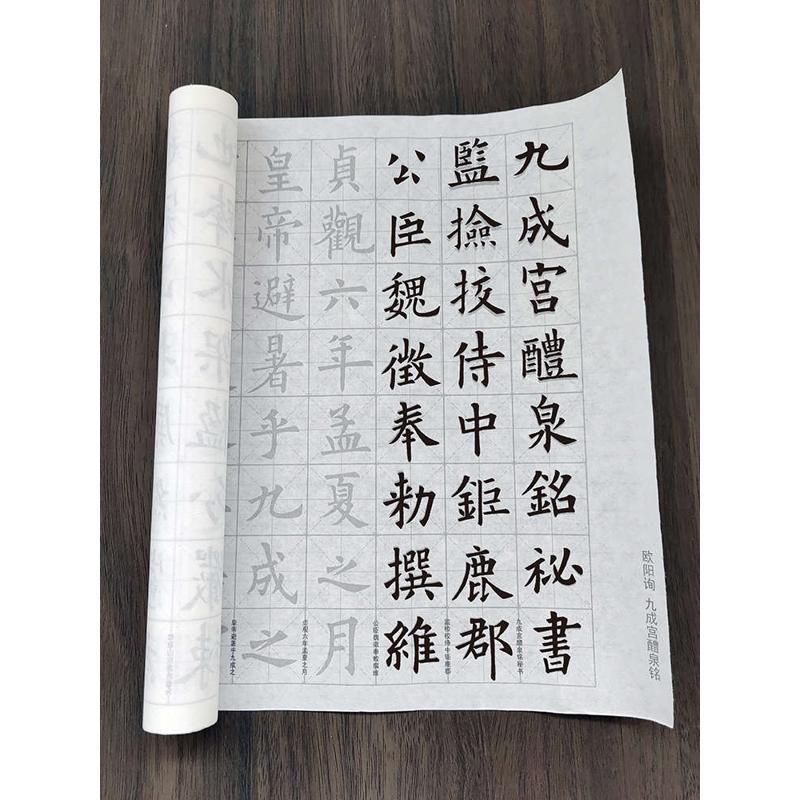 九成宮醴泉銘祕書
監撿挍侍中鉅鹿郡
公臣魏徵奉勑撰維
貞觀六年孟夏之月
皇帝避暑乎九成之
欧阳询 九成宫醴泉铭
九成宫醴泉铭秘书
监检校侍中钜鹿郡
公臣魏徵奉敕撰维
贞观六年孟夏之月
皇帝避暑乎九成之